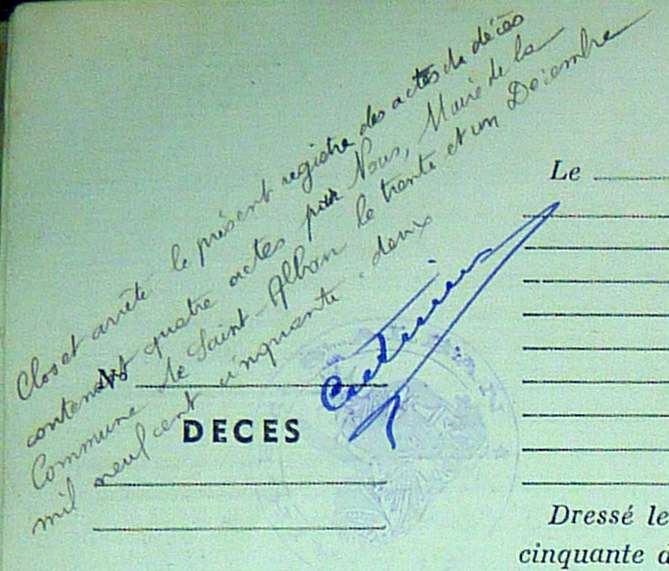 Clos et arrêté le présent registre des actes de décès
contenant quatre actes par Nous, Maire de la
Commune de Saint-Alban le trente et un Décembre
mil neuf cent cinquante-deux
Le
N
DECES
Dressé le
cinquante